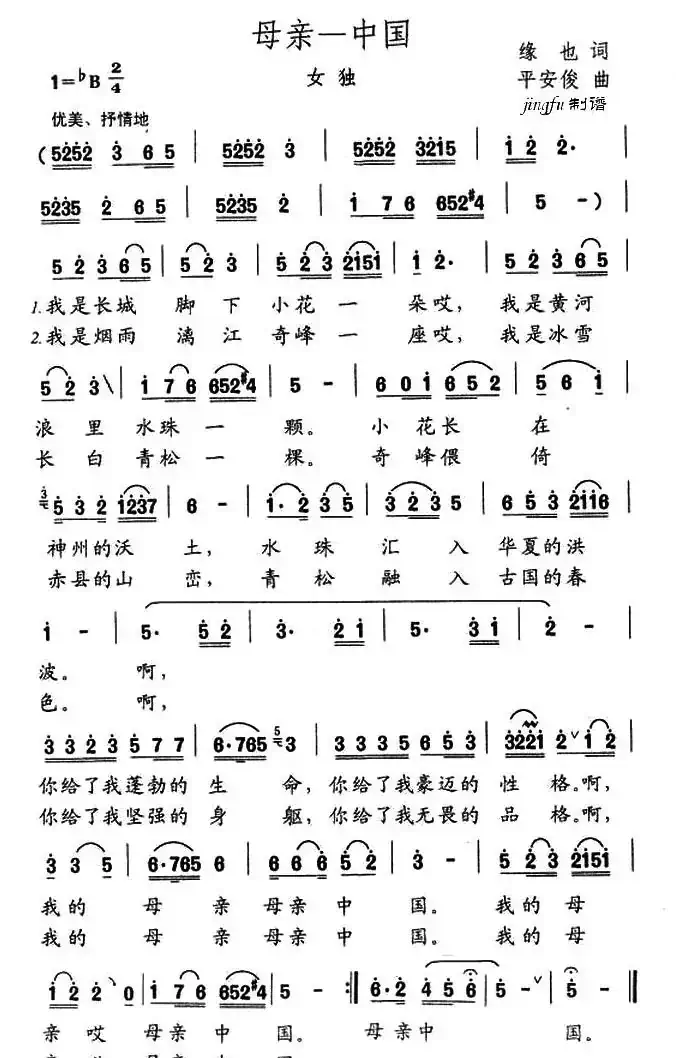 母亲—中国
缘也词
1=♭B 2/4 女独 平安俊 曲
jingfu 制谱
优美、抒情地
(5252 3 65 | 5252 3 | 5252 3215 | 12 2· |
5235 2 65 | 5235 2 | 176 652#4 | 5 -) |
52365 | 523 | 523 2151 | 1 2· | 52365 |
1.我是长城 脚下 小花一 朵哎, 我是黄河
2.我是烟雨 漓江 奇峰一 座哎, 我是冰雪
523\ | 176 652#4 | 5 - | 601 652 | 56 1 |
浪里 水珠一 颗。 小花长 在
长白 青松一 棵。 奇峰偎 倚
3 532 1237 | 6 - | 1·2 35 | 323 5 | 653 2116 |
神州的沃 土, 水珠 汇入 华夏的洪
赤县的山 峦, 青松 融入 古国的春
1 - | 5· 52 | 3· 21 | 5· 31 | 2 - |
波。 啊,
色。 啊,
3323 577 | 6·765 5 3 | 3335 653 | 3221 2 ∨ 12 |
你给了我蓬勃的 生 命, 你给了我豪迈的 性 格。啊,
你给了我坚强的 身 躯, 你给了我无畏的 品 格。啊,
335 | 6·765 6 | 666 52 | 3 - | 523 2151 |
我的 母 亲 母亲 中 国。 我的 母
我的 母 亲 母亲 中 国。 我的 母
122 0 | 176 652#4 | 5 - :‖ 6·2 456 | 5 - ∨ | 5 - ‖
亲哎 母亲中 国。 母亲中 国。